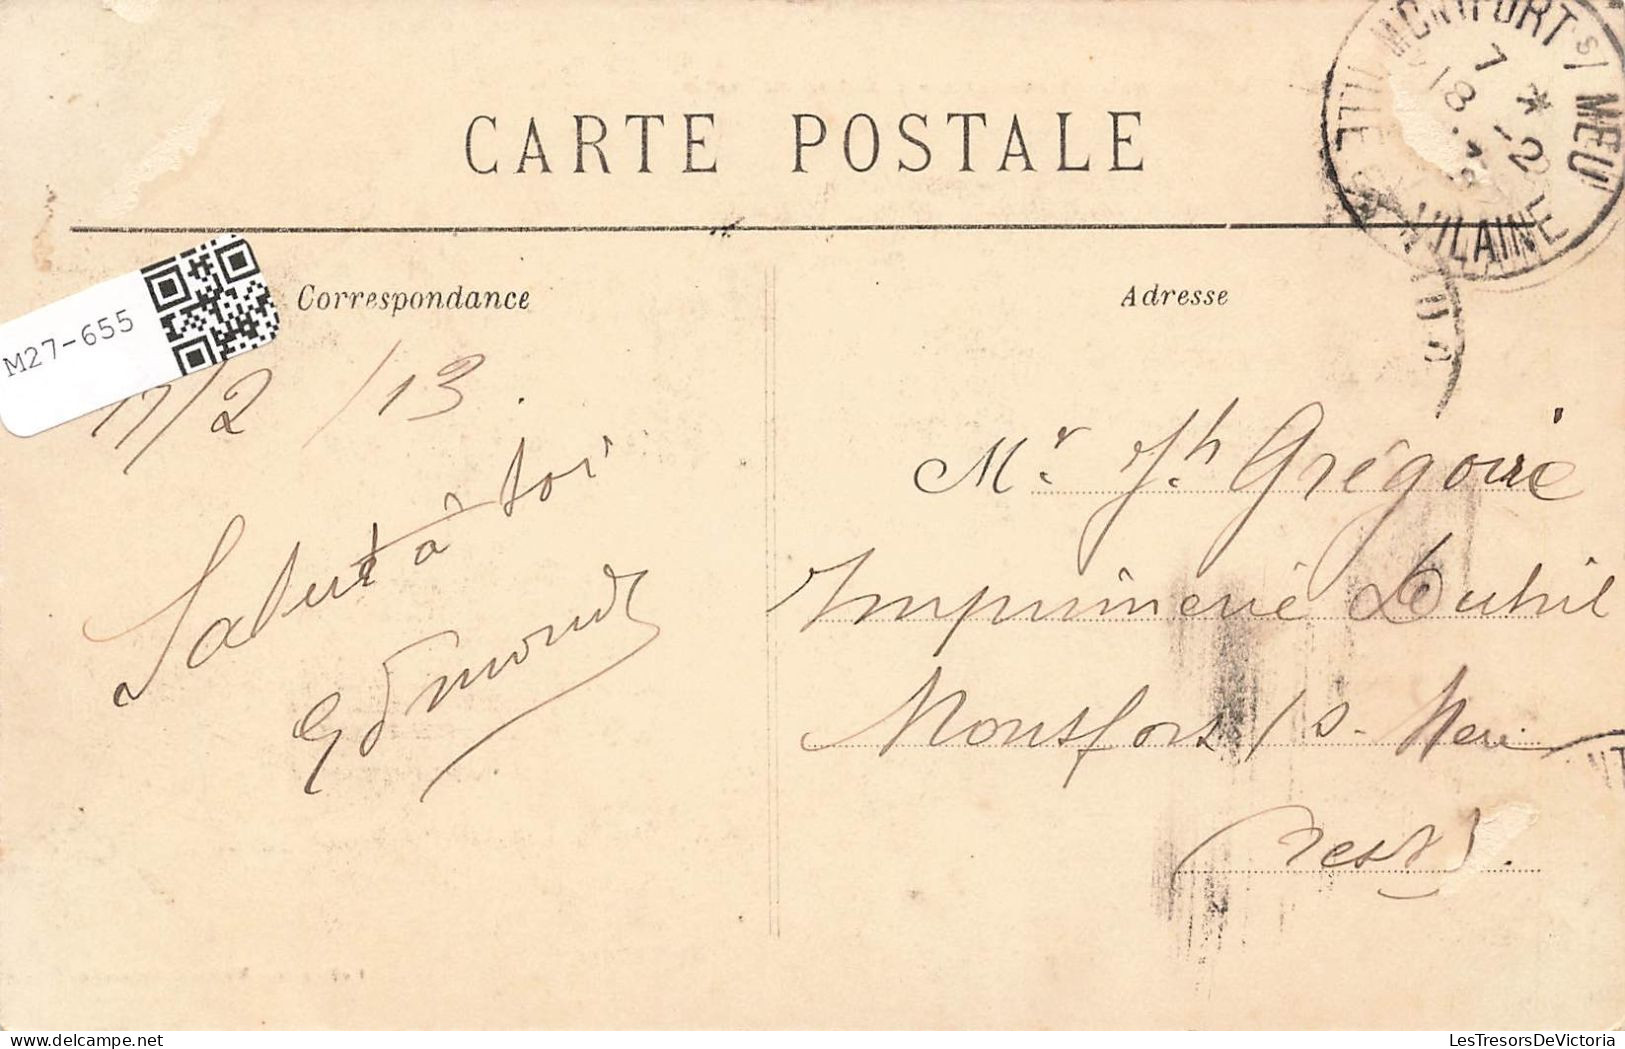 CARTE POSTALE
MONTFORT S/ MEU
ILLE
VILAINE
7 *
18
Correspondance
Adresse
M27-655
17/2/13.
Salut à toi
Edmond
Mr. Jh. Grégoire
Imprimerie Duhil
Montfort s. Meu
LesTresorsDeVictoria.com